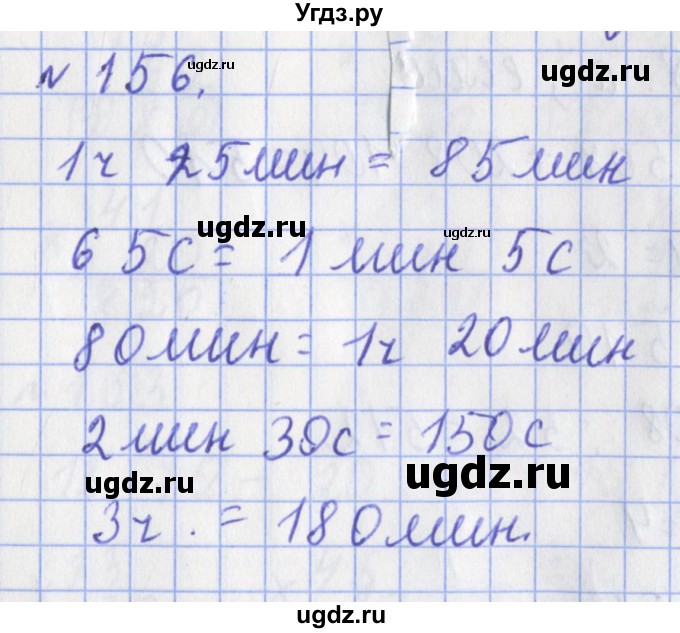 Угдз.ру
№ 156.
ugdz.ru
ugdz.ru
1ч 25мин = 85мин
ugdz.ru
ugdz.ru
65с = 1 мин 5с
80мин = 1ч 20мин
2мин 30с = 150с
ugdz.ru
ugdz.ru
3ч. = 180мин.
ugdz.ru